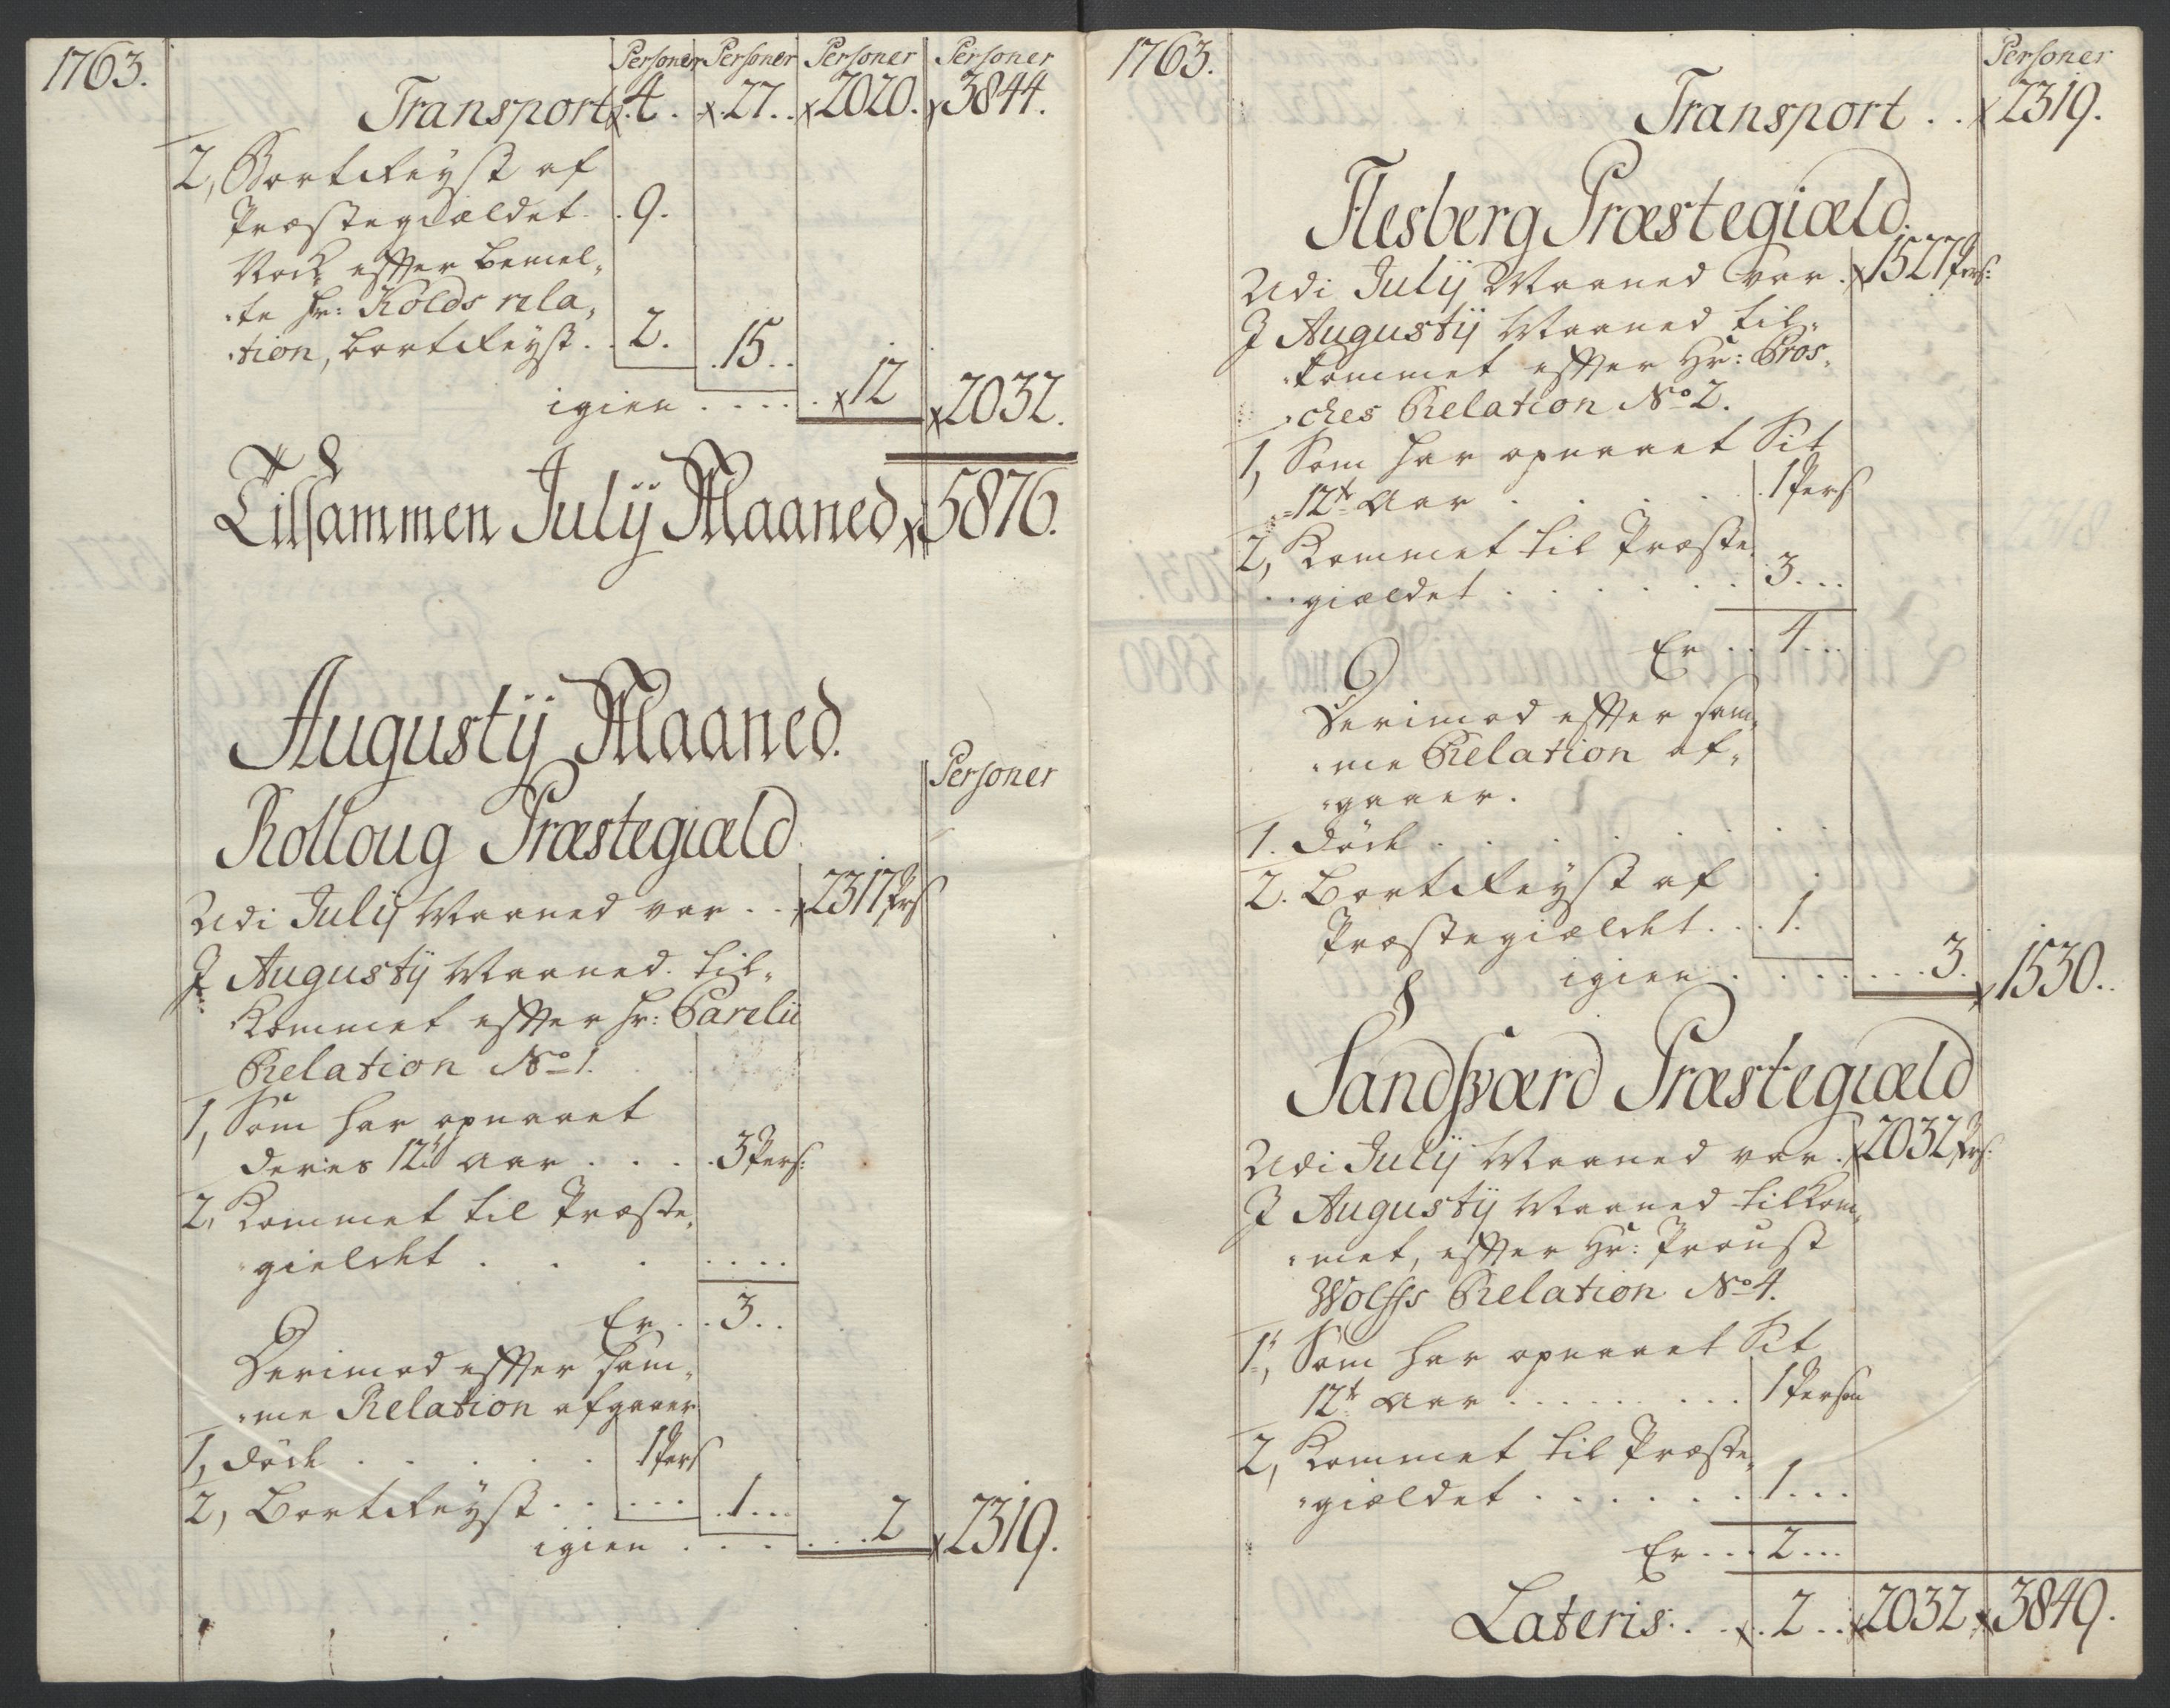 1763.
Personer Personer Personer Personer
Transport x 4. x 27. x 2020. x 3844.
2, Bortreyst af
Præstegiældet. . 9.
Nock efter bemel„
„te Hr: Kolds rela„
„tion, bortreyst. . 2. . 15. .
igien . . . . . x 12 x 2032.
Tilsammen Julij Maaned x 5876.
Augustij Maaned.
Personer
Rolloug Præstegiæld
Udi Julij Maaned var . . x 2317 Prs
J Augustij Maaned. til„
Kommet efter Hr: Parelii
Relation No 1.
1, Som har opnaaet
deres 12te aar . . . . 3 Pers:
2, Kommet til Præste„
„gieldet . . . . . . .
Er . . 3. .
Derimod efter sam„
„me Relation afgaaer
1, døde . . . . . 1 Pers
2, Bortreyst . . . . . . 1 . . .
igien . . . . . . . 2 x 2319.
1763.
Personer
Transport . . x 2319.
Flesberg Præstegiæld.
Udi Julij Maaned var . x 1527 Pers:
J Augustij Maaned til„
„kommet efter Hr: Bros„
„ches Relation No 2.
1, Som har opnaaet Sit
12te Aar . . . . . 1 Pers
2, Kommet til Præste„
„giældet . . . . . . 3. . .
Er . . 4. . .
Derimod efter sam„
„me Relation af„
„gaaer.
1. døde . . . . . . .
2. Bortreyst af
Præstegiældet. . . 1.
igien . . . . . . . . 3. x 1530. .
Sandsværd Præstegiæld
Udi Julij Maaned var . x 2032 Prs:
J Augustij Maaned tilkom„
„met, efter Hr: Proust
Wolffs Relation No 4.
1, Som har opnaaet Sit
12te aar . . . . . . . . 1 Person
2, Kommet til Præste„
„giældet . . . . . . . 1. . .
Er . . . 2. . .
Lateris. . . x . 2 . . x 2032 x 3849.